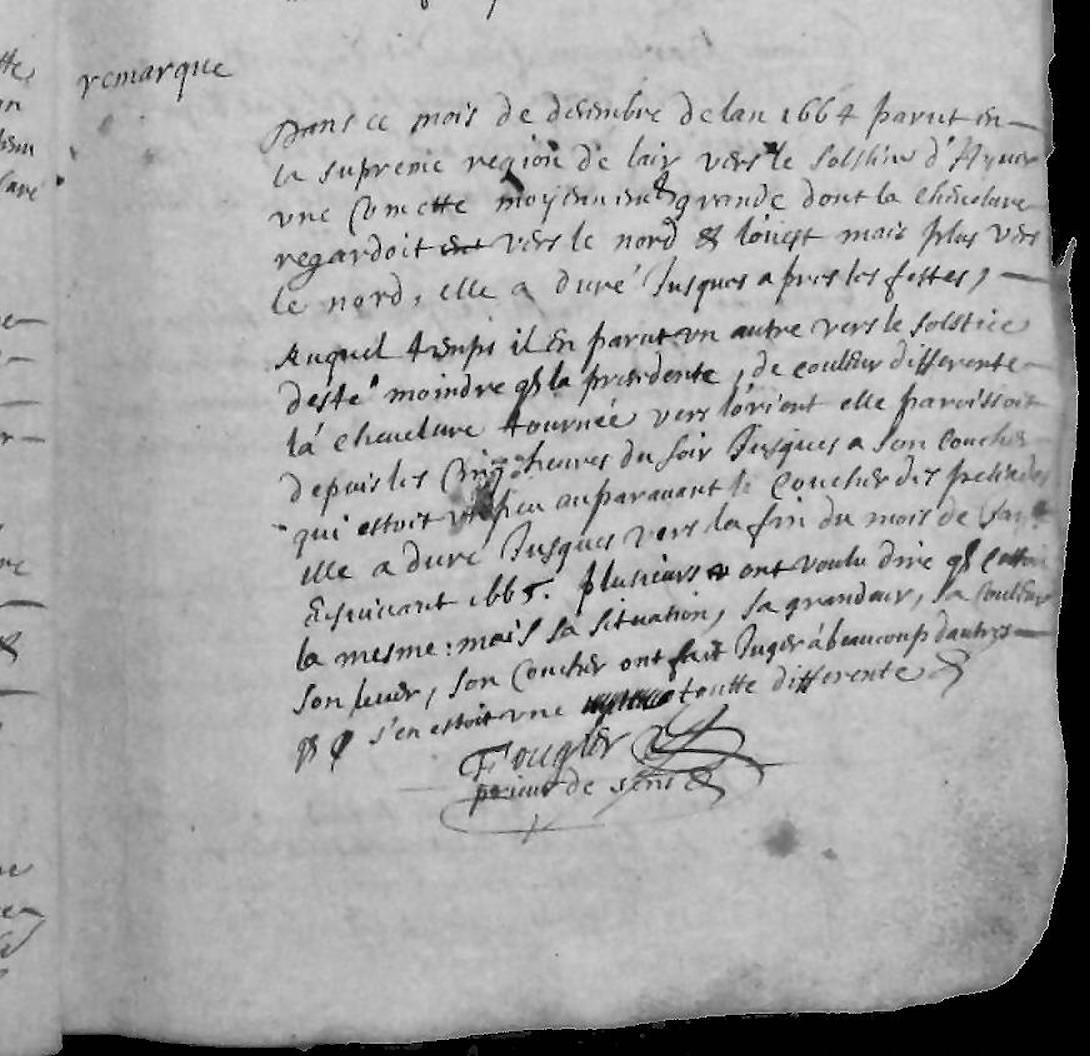 remarque
Dans ce mois de desembre de lan 1664 parut en
la supreme region de lair vers le solstice d'Hyuer
vne Comette moyennem^t grande dont la cheuelure
regardoit vers le nord & l'ouest mais plus vers
le nord, elle a duré Jusques apres les festes,
Auquel temps il en parut vn autre vers le solstice
desté moindre q la presedente, de couleur differente
lá cheuelure tournée vers lórient elle paroissoit
depuis les Cinq heures du soir Jusques a son coucher
qui estoit vn peu auparauant le Coucher des pleiades
elle a duré Jusques vers la fin du mois de Jan
Ensuiuant 1665. plusieurs ont voulu dire q cestoit
la mesme: mais sa situation, sa grandeur, sa couleur
son leuer, son Coucher ont fait Juger á beaucoup dautres
q s'en estoit vne toutte differente
Fougler
prieur de sens